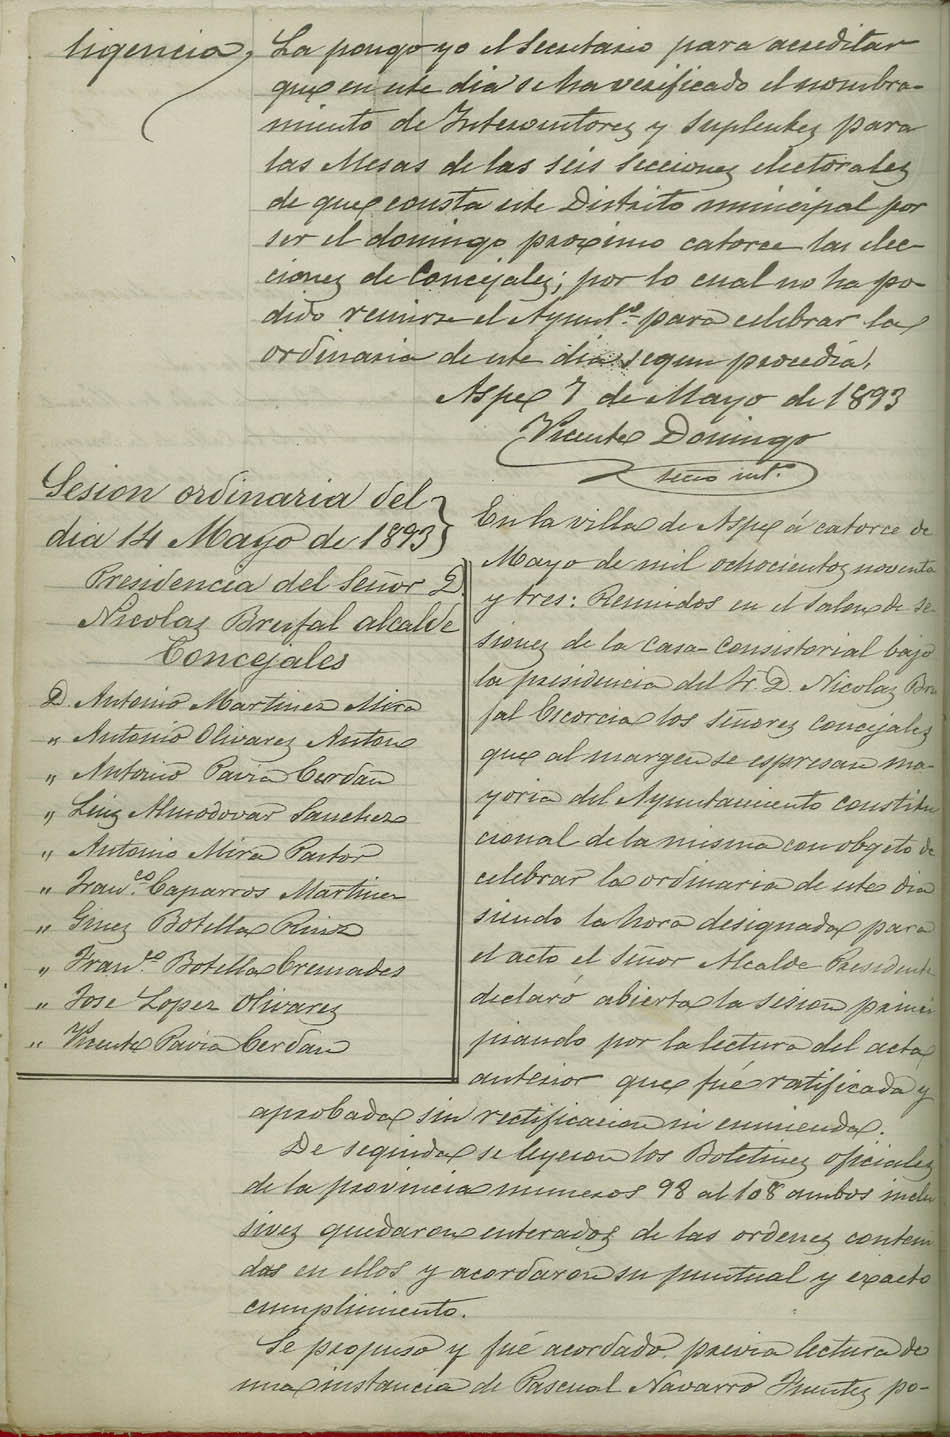 ligencia,
La pongo yo el Secretario para acreditar
que en este dia se ha verificado el nombra-
miento de Interventores y Suplentes para
las Mesas de las seis secciones electorales
de que consta este Distrito municipal por
ser el domingo proximo catorce las elec-
ciones de Concejales; por lo cual no ha po-
dido reunirse el Ayunt.º para celebrar la
ordinaria de este dia segun procedía.
Aspe 7 de Mayo de 1893
Vicente Domingo
secrio int.º
Sesion ordinaria del
dia 14 Mayo de 1893
Presidencia del Señor D.
Nicolas Brufal alcalde
Concejales
D. Antonio Martinez Mira
" Antonio Olivares Anton
" Antonio Pavia Cerdan
" Luis Almodovar Sanchez
" Antonio Mira Pastor
" Fran.co Caparros Martinez
" Gines Botella Riuz
" Fran.co Botella Cremades
" Jose Lopez Olivares
" Vicente Pavia Cerdan
En la villa de Aspe á catorce de
Mayo de mil ochocientos noventa
y tres: Reunidos en el salon de se-
siones de la casa-consistorial bajo
la presidencia del Sr. D. Nicolas Bru
fal Escorcia los señores concejales
que al margen se espresan ma-
yoria del Ayuntamiento constitu
cional de la misma con obgeto de
celebrar la ordinaria de este dia
siendo la hora designada para
el acto el Señor Alcalde Presidente
declaró abierta la sesion princi
piando por la lectura del acta
anterior que fué ratificada y
aprobada sin rectificacion ni enmienda.
De seguida se leyeron los Boletines oficiales
de la provincia numeros 98 al 108 ambos inclu
sives quedaron enterados de las ordenes conteni
das en ellos y acordaron su puntual y exacto
cumplimiento.
Se propuso y fué acordado previa lectura de
una instancia de Pascual Navarro Fuentes po-